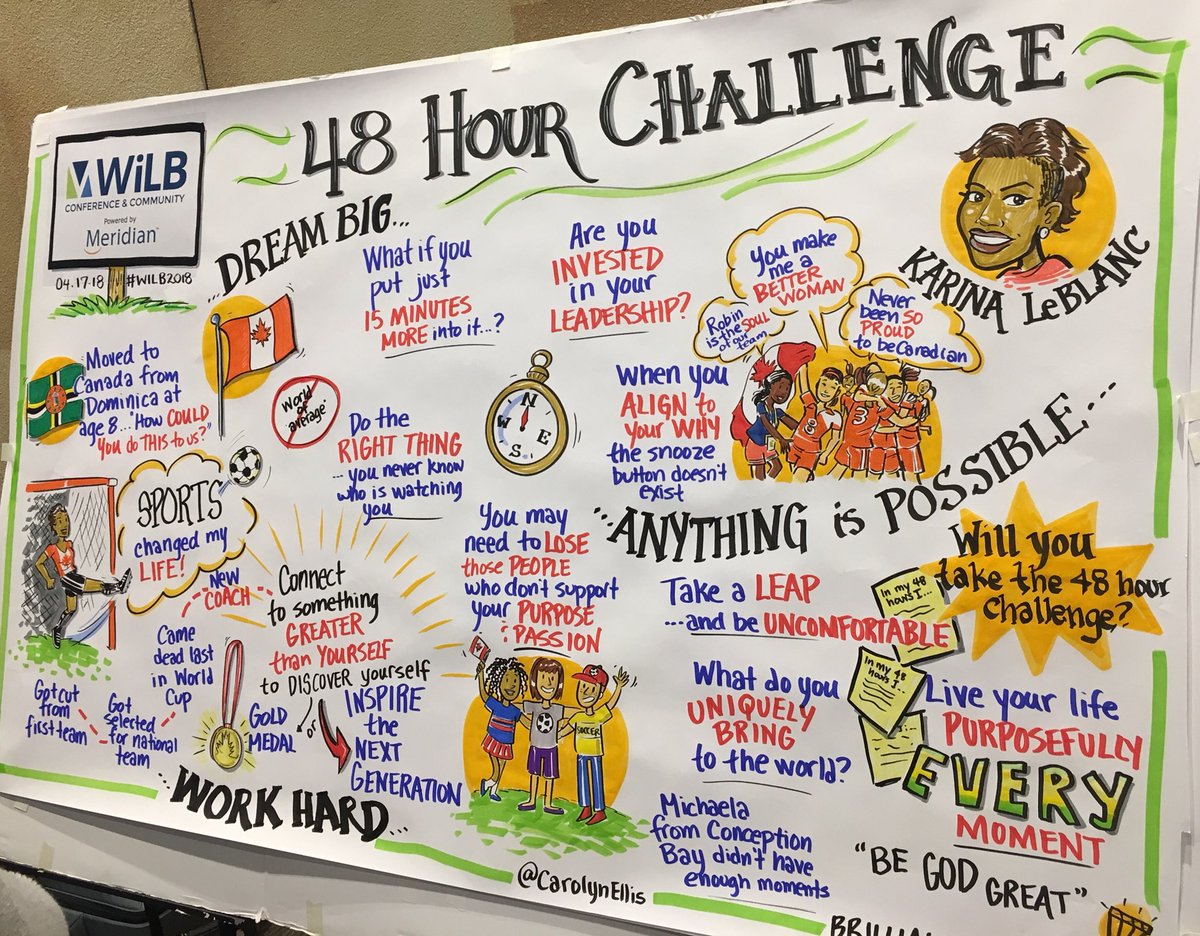 48 HOUR CHALLENGE
WiLB
CONFERENCE & COMMUNITY
Powered by
Meridian™
04.17.18 #WILB2018
KARINA LeBLANC
...DREAM BIG...
What if you
put just
15 MINUTES
MORE into it...?
Are you
INVESTED
in your
LEADERSHIP?
You make
me a
BETTER
WOMAN
Robin
is the SOUL
of our
team
Never
been SO
PROUD
to be Canadian
Moved to
Canada from
Dominica at
age 8..."How COULD
You do THIS to us?"
World
of
average"
Do the
RIGHT THING
...you never know
who is watching
you
N
W E
S
When you
ALIGN to
your WHY
the snooze
button doesn't
exist
SPORTS
changed my
LIFE!
...ANYTHING is POSSIBLE...
You may
need to LOSE
those PEOPLE
who don't support
your PURPOSE
: PASSION
SOCCER
Connect
to something
GREATER
than YOURSELF
to DISCOVER yourself
NEW
COACH
Came
dead last
in World
Cup
Got cut
from
first team
Got
selected
for national
team
GOLD
MEDAL
or
INSPIRE
the
NEXT
GENERATION
...WORK HARD...
Take a LEAP
...and be UNCOMFORTABLE
Will you
take the 48 hour
challenge?
In my 48
hours I...
In my 48
hours I...
What do you
UNIQUELY
BRING
to the world?
Live your life
PURPOSEFULLY
EVERY
MOMENT
Michaela
from Conception
Bay didn't have
enough moments
"BE GOD
GREAT"
@CarolynEllis